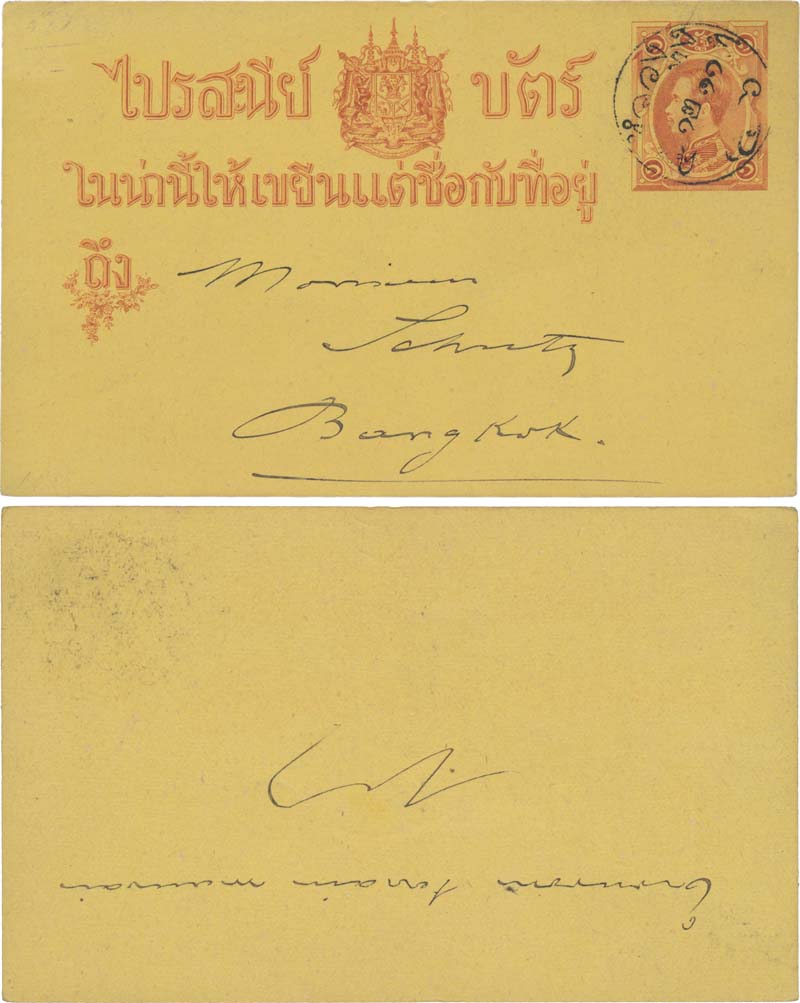 ไปรสนีย์ บัตร์
ในน่านี้ให้เขยีนแต่ชื่อกับที่อยู่
๑ ๑
๑ ๑
ถึง
Monsieur
Schutz
Bangkok.
terrain mauvais